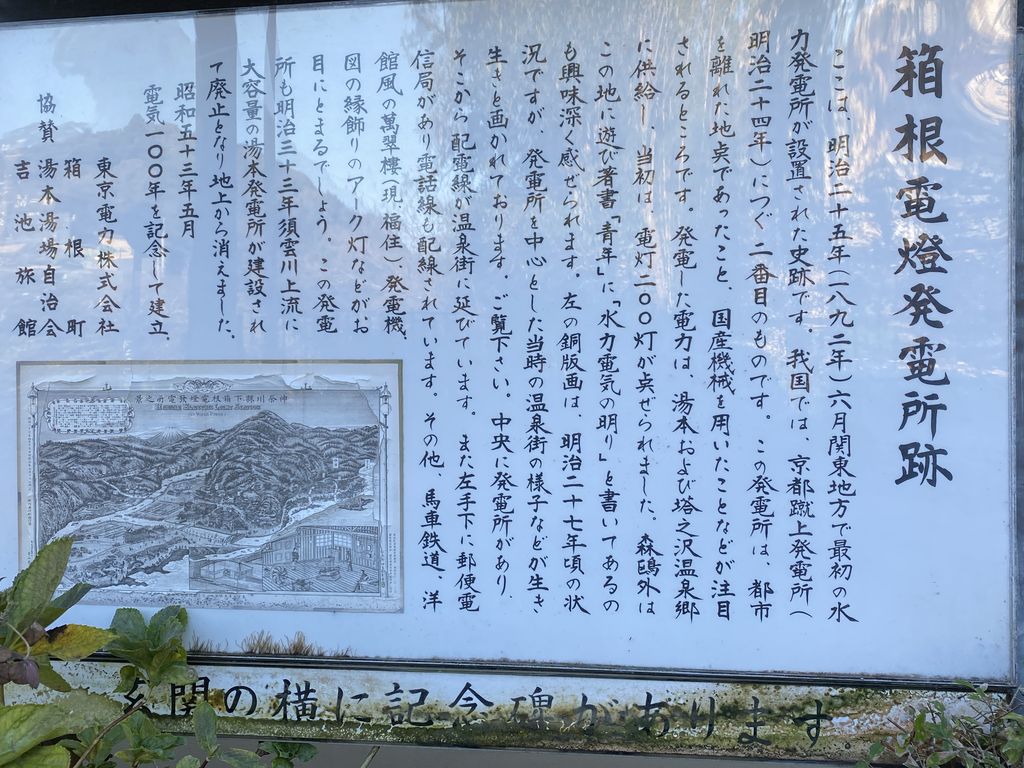 箱根電燈発電所跡
ここは、明治二十五年(一八九二年)六月関東地方で最初の水
力発電所が設置された史跡です。我国では、京都蹴上発電所(
明治二十四年)につぐ二番目のものです。この発電所は、都市
を離れた地点であったこと、国産機械を用いたことなどが注目
されるところです。発電した電力は、湯本および塔之沢温泉郷
に供給し、当初は、電灯二〇〇灯が点ぜられました。森鴎外は
この地に遊び著書「青年」に「水力電気の明り」と書いてあるの
も興味深く感ぜられます。左の銅版画は、明治二十七年頃の状
況ですが、発電所を中心とした当時の温泉街の様子などが生き
生きと画かれております。ご覧下さい。中央に発電所があり、
そこから配電線が温泉街に延びています。また左手下に郵便電
信局があり電話線も配線されています。その他、馬車鉄道、洋
館風の萬翠樓(現福住)、発電機、
図の縁飾りのアーク灯などがお
目にとまるでしょう。この発電
所も明治三十三年須雲川上流に
大容量の湯本発電所が建設され
て廃止となり地上から消えました。
昭和五十三年五月
電気一〇〇年を記念して建立
東京電力株式会社
箱根町
協賛 湯本湯場自治会
吉池旅館
神奈川縣下箱根電燈發電所之景
玄関の横に記念碑があります。